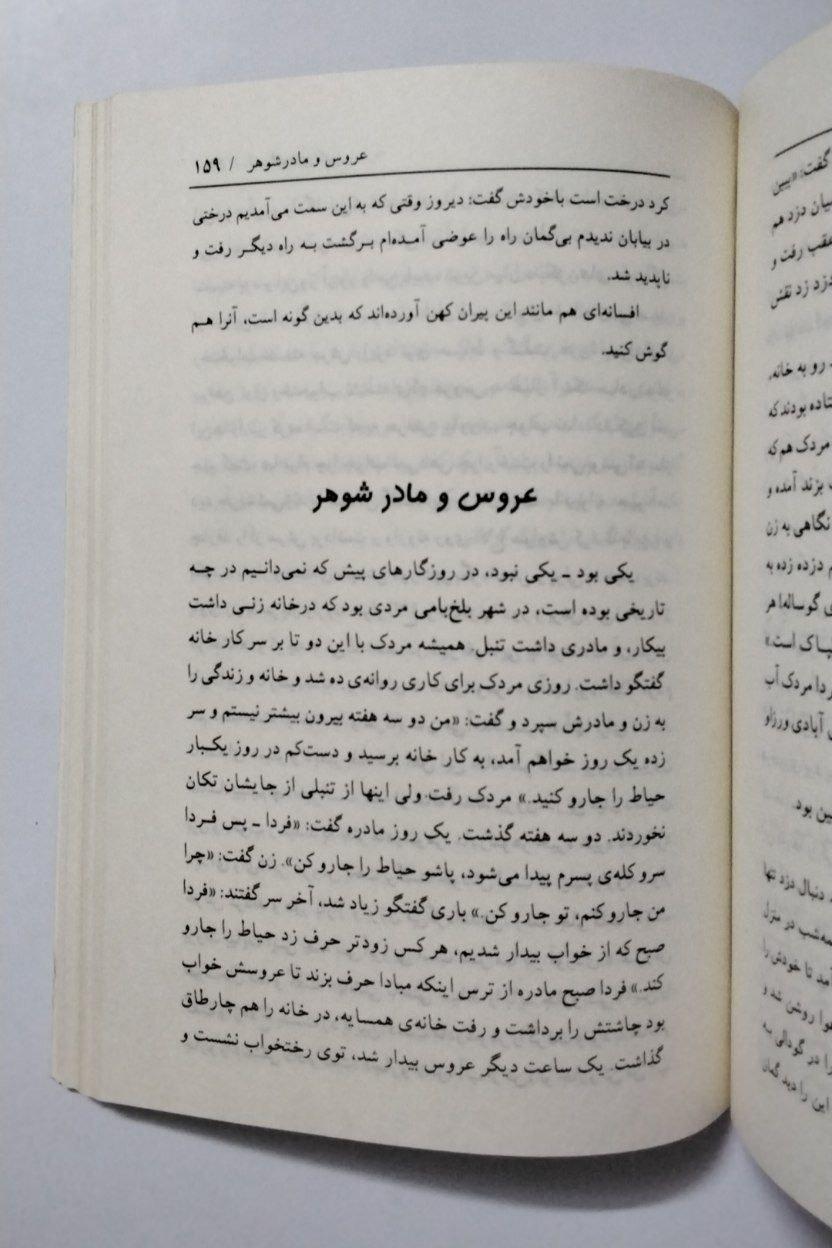 عروس و مادرشوهر / ۱۵۹
کرد درخت است باخودش گفت: دیروز وقتی که به این سمت می‌آمدیم درختی
در بیابان ندیدم بی‌گمان راه را عوضی آمده‌ام برگشت به راه دیگر رفت و
ناپدید شد.
افسانه‌ای هم مانند این پیران کهن آورده‌اند که بدین گونه است، آنرا هم
گوش کنید.
عروس و مادر شوهر
یکی بود ـ یکی نبود، در روزگارهای پیش که نمی‌دانیم در چه
تاریخی بوده است، در شهر بلخ‌بامی مردی بود که درخانه زنی داشت
بیکار، و مادری داشت تنبل. همیشه مردک با این دو تا بر سر کار خانه
گفتگو داشت. روزی مردک برای کاری روانه‌ی ده شد و خانه و زندگی را
به زن و مادرش سپرد و گفت: «من دو سه هفته بیرون بیشتر نیستم و سر
زده یک روز خواهم آمد، به کار خانه برسید و دست‌کم در روز یکبار
حیاط را جارو کنید.» مردک رفت. ولی اینها از تنبلی از جایشان تکان
نخوردند. دو سه هفته گذشت. یک روز مادره گفت: «فردا ـ پس فردا
سر و کله‌ی پسرم پیدا می‌شود، پاشو حیاط را جارو کن». زن گفت: «چرا
من جارو کنم، تو جارو کن.» باری گفتگو زیاد شد، آخر سر گفتند: «فردا
صبح که از خواب بیدار شدیم، هر کس زودتر حرف زد حیاط را جارو
کند.» فردا صبح مادره از ترس اینکه مبادا حرف بزند تا عروسش خواب
بود چاشتش را برداشت و رفت خانه‌ی همسایه، در خانه را هم چارطاق
گذاشت. یک ساعت دیگر عروس بیدار شد، توی رختخواب نشست و
گفت: «ببین
سیان دزد هم
عقب رفت و
دزد زد نقش
رو به خانه،
تاده بودند که
مردک هم که
بزند آمده و
نگاهی به زن
دزده زده به
ی گوساله‌ا هر
پاک است»
ردا مردک آب
آبادی ورزاو
ین بود.
دنبال دزد تنها
مه‌شب در منزل
آمد تا خودش را
هوا روشن شد و
را در گودالی به
این را دید گمان